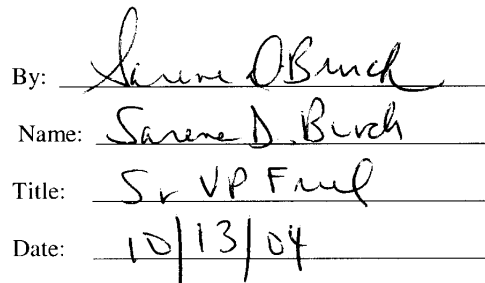 By: Sarene D Burch
Name: Sarene D. Burch
Title: Sr VP Fuel
Date: 10/13/04